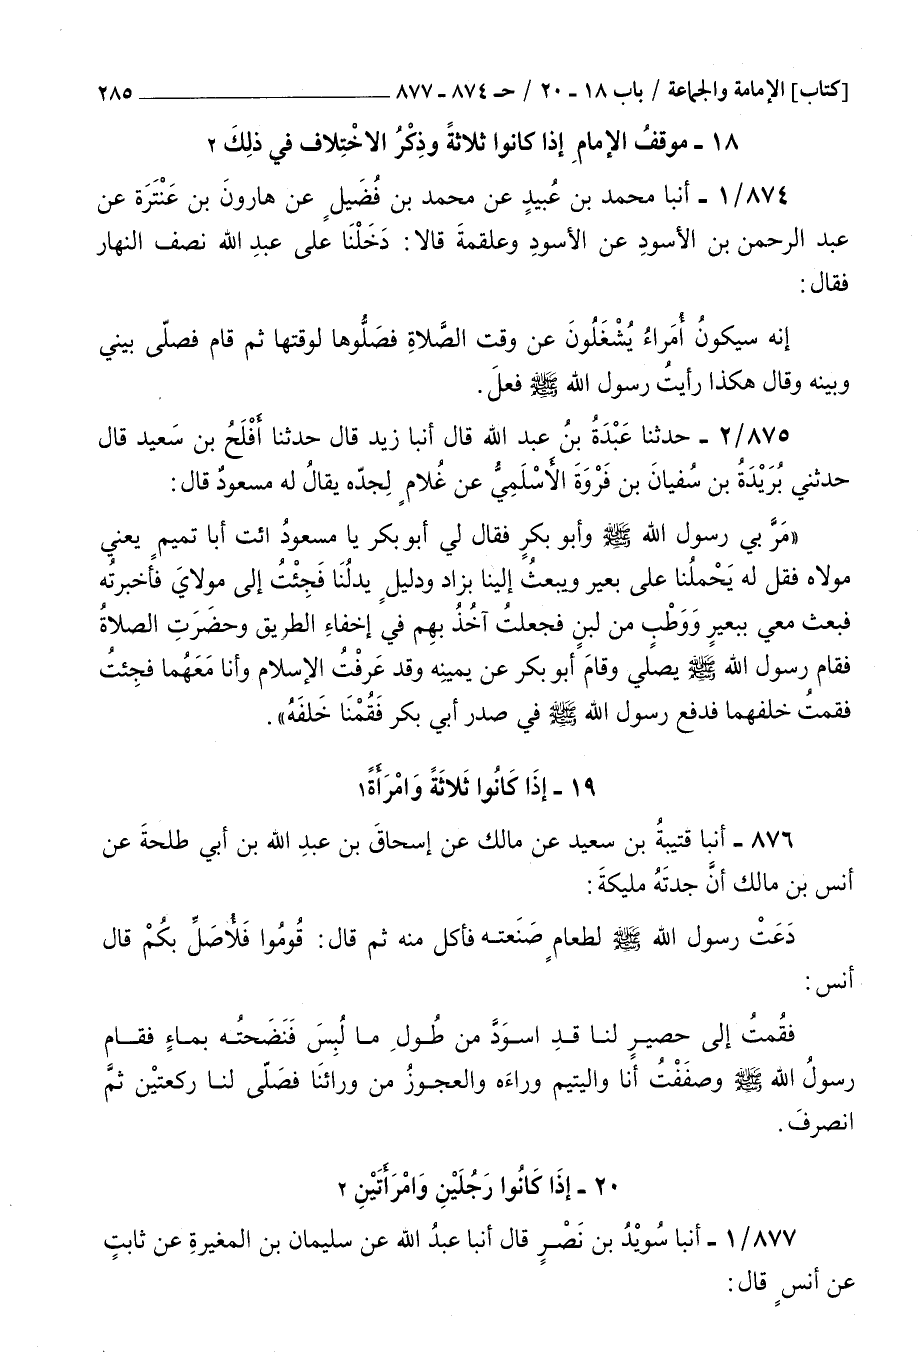 [كتاب] الإمامة والجماعة / باب ١٨ - ٢٠ / حـ ٨٧٤ - ٨٧٧ ــــــــــــــــــــ ٢٨٥
١٨ - موقفُ الإمامِ إذا كانوا ثلاثةً وذِكْرُ الاخْتِلاف في ذلِكَ ٢
١/٨٧٤ - أنبا محمد بن عُبيدٍ عن محمد بن فُضَيلٍ عن هارونَ بن عَنْتَرَة عن
عبد الرحمن بن الأسودِ عن الأسودِ وعلقمةَ قالا: دَخَلْنَا على عبدِ الله نصف النهار
فقال:
إنه سيكونُ أُمَراءُ يُشْغَلُونَ عن وقت الصَّلاةِ فصَلُّوها لوقتها ثم قام فصلّى بيني
وبينه وقال هكذا رأيتُ رسول الله ﷺ فعلَ.
٢/٨٧٥ - حدثنا عَبْدَةُ بنُ عبد الله قال أنبا زيد قال حدثنا أَفْلَحُ بن سَعيد قال
حدثني بُرَيْدَةُ بن سُفيانَ بن فَرْوَةَ الأَسْلَمِيُّ عن غُلامٍ لِجدّه يقالُ له مسعودٌ قال:
«مَرَّ بي رسول الله ﷺ وأبو بكرٍ فقال لي أبو بكر يا مسعودُ ائت أبا تميمٍ يعني
مولاه فقل له يَحْملُنا على بعير ويبعثُ إلينا بزاد ودليلٍ يدلُنَا فَجِئْتُ إلى مولايَ فأخبرتُه
فبعث معي ببعيرٍ وَوَطْبٍ من لبنٍ فجعلتُ آخُذُ بهم في إخفاءِ الطريق وحضَرَتِ الصلاةُ
فقام رسول الله ﷺ يصلي وقامَ أبو بكر عن يمينِه وقد عَرفْتُ الإسلام وأنا مَعَهُما فجِئتُ
فقمتُ خلفهما فدفع رسول الله ﷺ في صدر أبي بكر فَقُمْنَا خَلفَهُ».
١٩ - إذَا كَانُوا ثَلاثَةً وَامْرَأَةً١
٨٧٦ - أنبا قتيبةُ بن سعيد عن مالك عن إسحاقَ بن عبدِ الله بن أبي طلحةَ عن
أنس بن مالك أنَّ جدتَهُ مليكةَ:
دَعَتْ رسول الله ﷺ لطعامٍ صَنَعته فأكل منه ثم قال: قُومُوا فَلأُصَلِّ بكُمْ قال
أنس:
فقُمتُ إلى حصيرٍ لنا قدِ اسوَدَّ من طُولِ ما لُبِسَ فَنَضَحتُه بماءٍ فقام
رسولُ الله ﷺ وصففْتُ أنا واليتيم وراءَه والعجوزُ من ورائنَا فصَلّى لنا ركعتيْن ثمَّ
انصرفَ.
٢٠ - إذَا كَانُوا رَجُلَيْنِ وَامْرَأَتَيْنِ ٢
١/٨٧٧ - أنبا سُويْدُ بن نَصْرٍ قال أنبا عبدُ الله عن سليمان بن المغيرةِ عن ثابتٍ
عن أنسٍ قال: